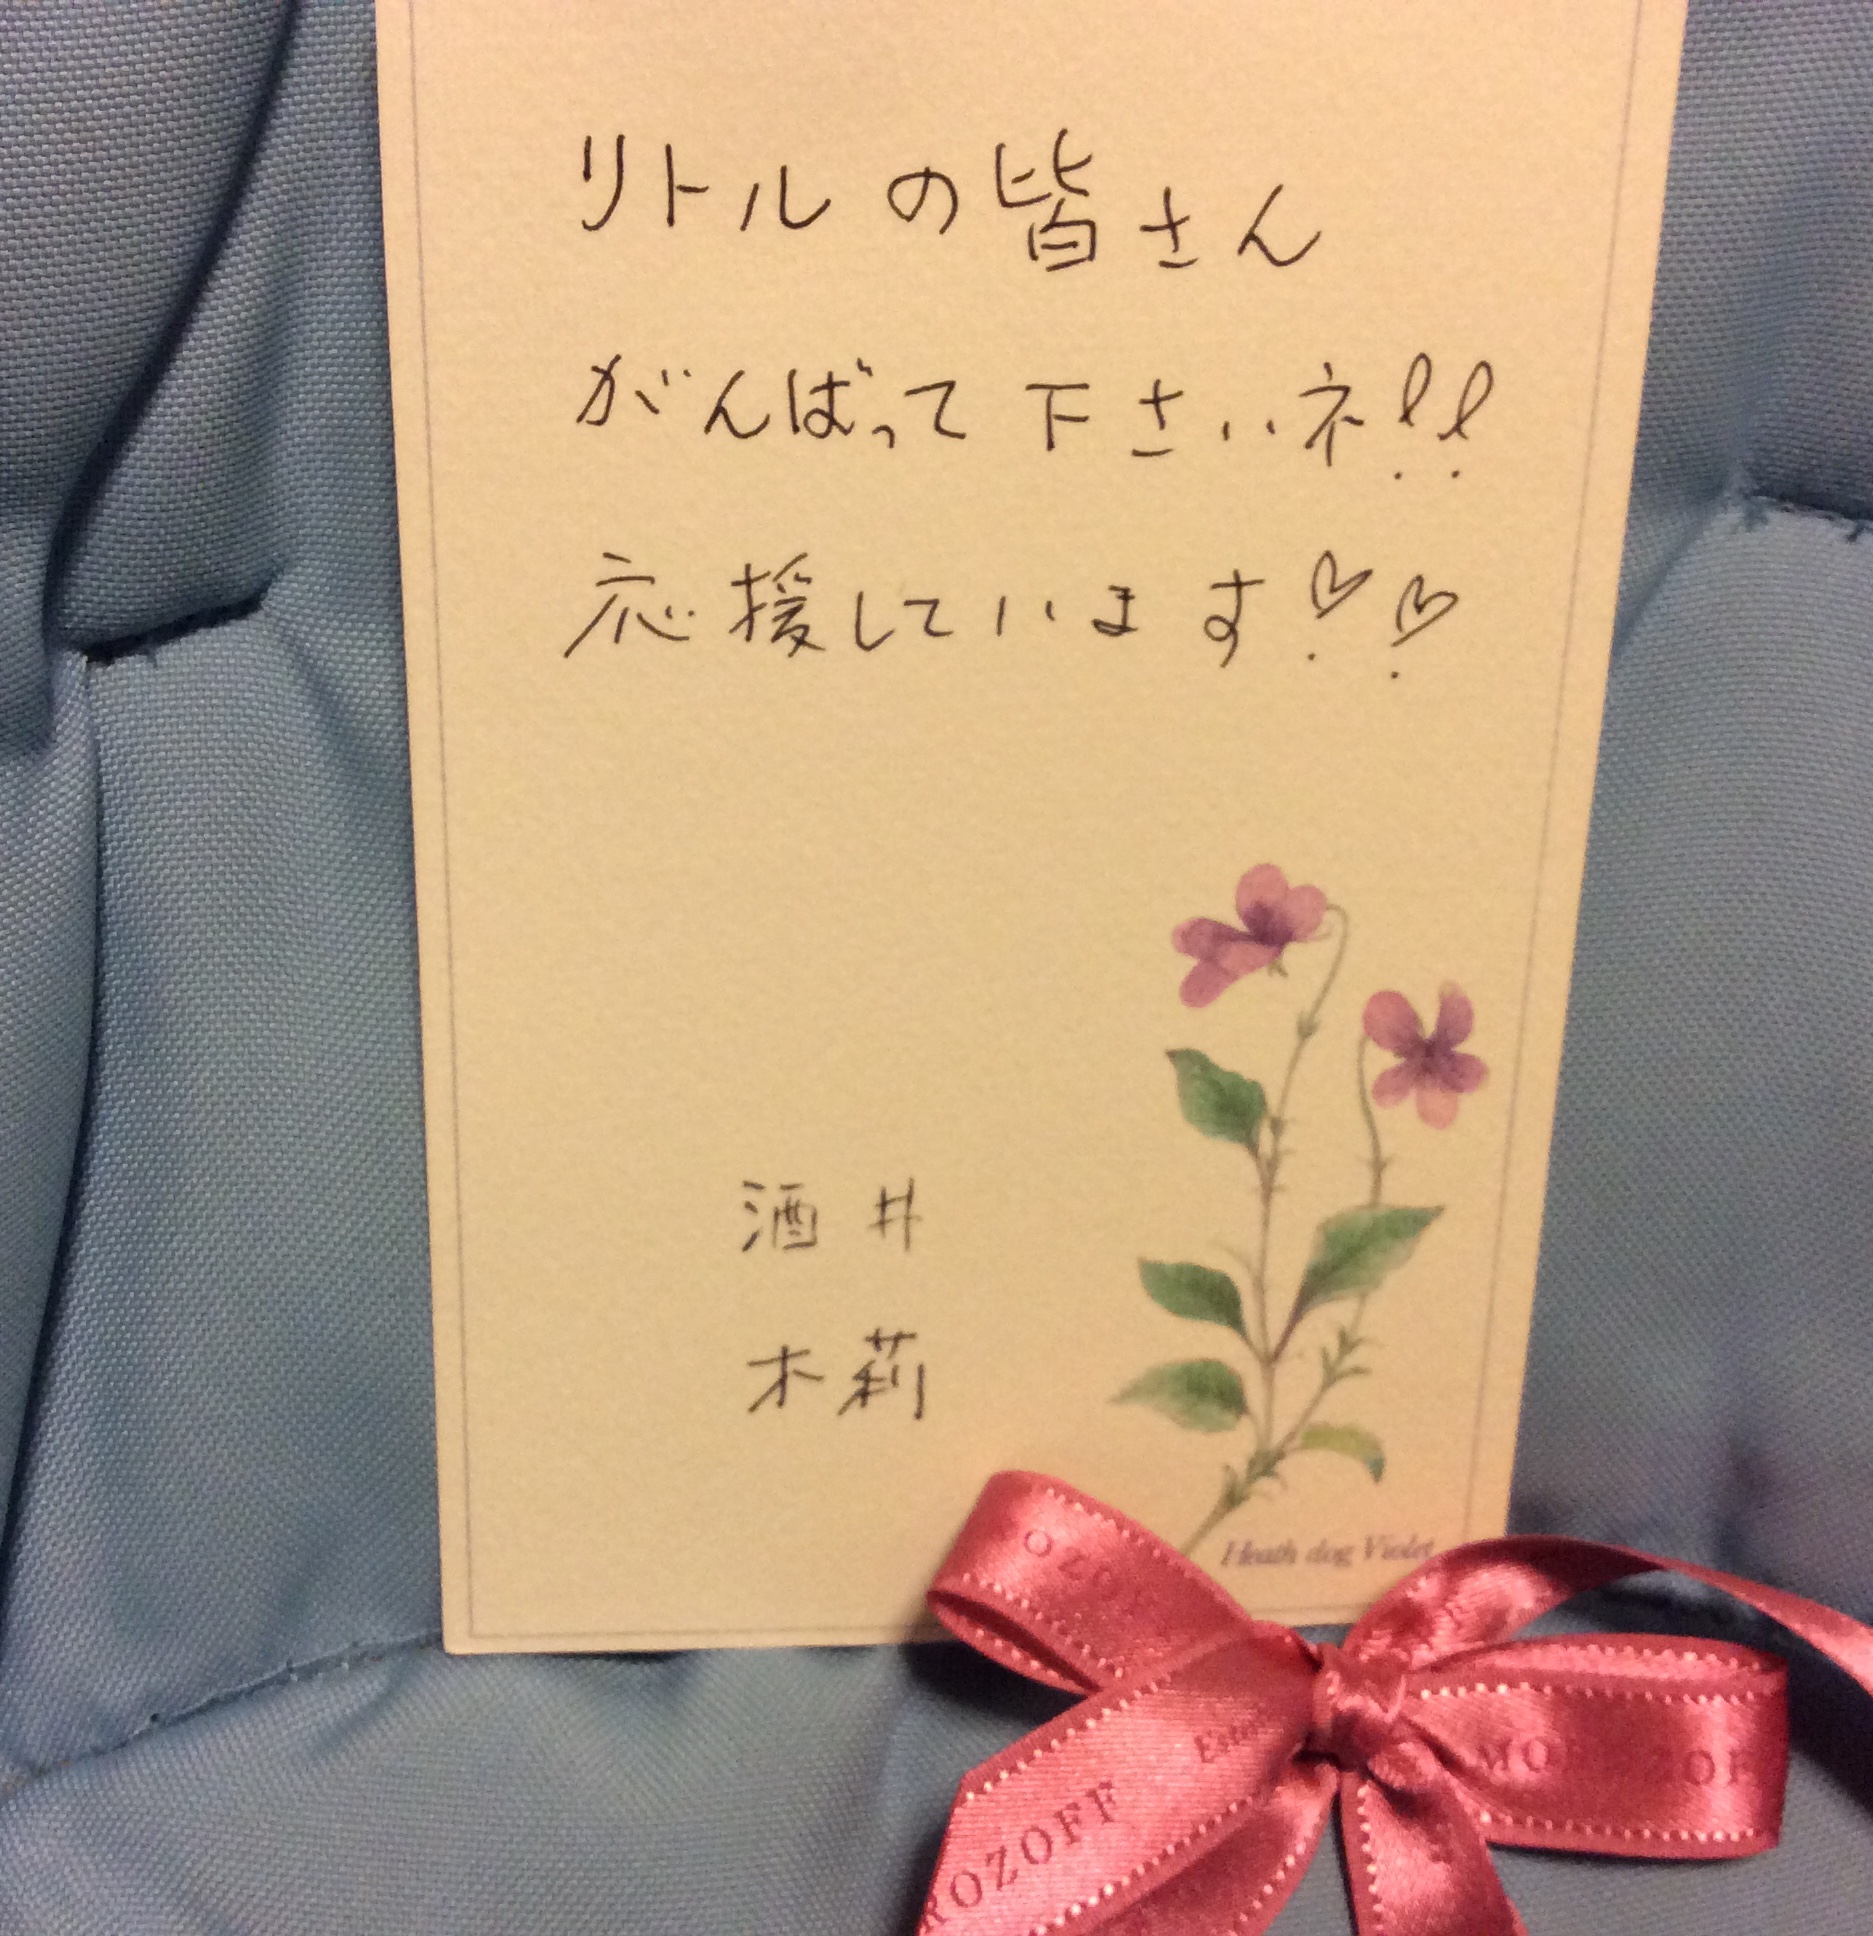 リトルの皆さん
がんばって下さいネ!!
応援しています♡♡
酒井
木莉
Heath dog Violet
OZOF
Ester
MO ZOF
ROZOFF